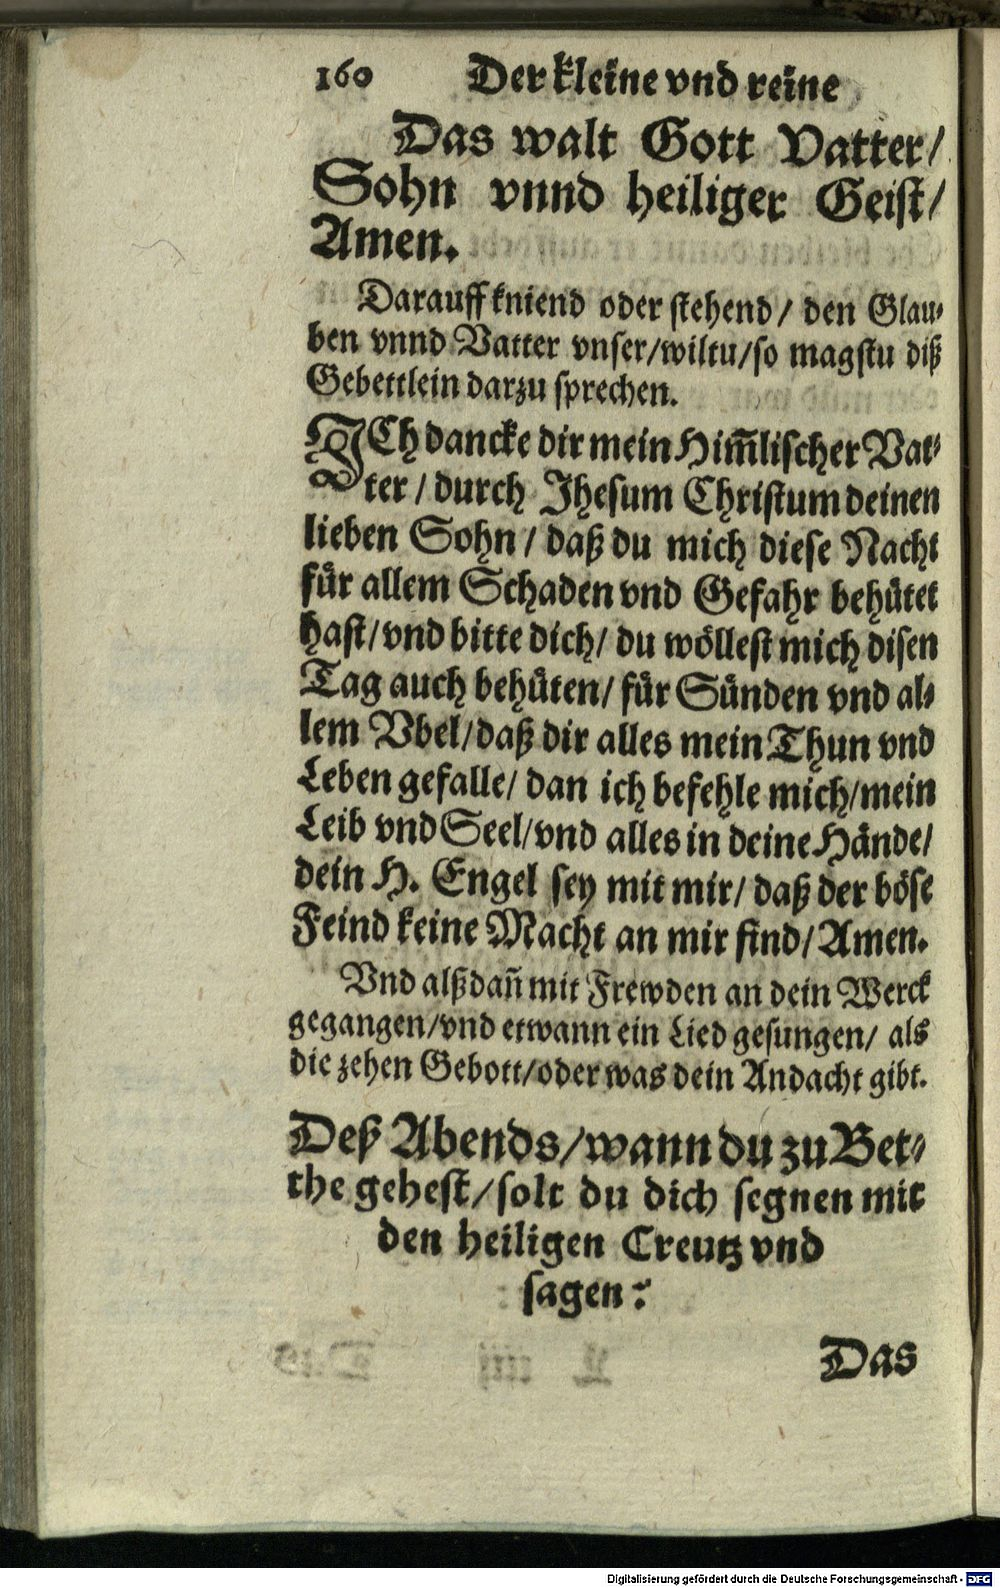 160 Der kleine vnd reine
Das walt Gott Vatter/
Sohn vnnd heiliger Geist/
Amen.
Darauff kniend oder stehend/ den Glau⸗
ben vnnd Vatter vnser/wiltu/so magstu diß
Gebettlein darzu sprechen.
ICh dancke dir mein Him̃lischer Vat⸗
ter / durch Jhesum Christum deinen
lieben Sohn / daß du mich diese Nacht
fuͤr allem Schaden vnd Gefahr behuͤtet
hast/vnd bitte dich/ du woͤllest mich disen
Tag auch behuͤten/ fuͤr Suͤnden vnd al⸗
lem Vbel/daß dir alles mein Thun vnd
Leben gefalle/ dan ich befehle mich/mein
Leib vnd Seel/vnd alles in deine Haͤnde/
dein H. Engel sey mit mir/ daß der boͤse
Feind keine Macht an mir find/ Amen.
Vnd alßdañ mit Frewden an dein Werck
gegangen/vnd etwann ein Lied gesungen/ als
die zehen Gebott/oder was dein Andacht gibt.
Deß Abends/wann du zu Bet⸗
the gehest/solt du dich segnen mit
den heiligen Creutz vnd
sagen:
Das
Digitalisierung gefördert durch die Deutsche Forschungsgemeinschaft - DFG